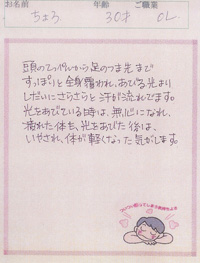 お名前 年齢 ご職業
ちょろ 30才 OL
頭のてっぺんから足のつま先まで
すっぽりと全身覆われ、あびる光より
しだいにさらさらと汗が流れでます。
光をあびている時は、無心になれ、
疲れた体も、光をあびた後は、
いやされ、体が軽くなった気がします。